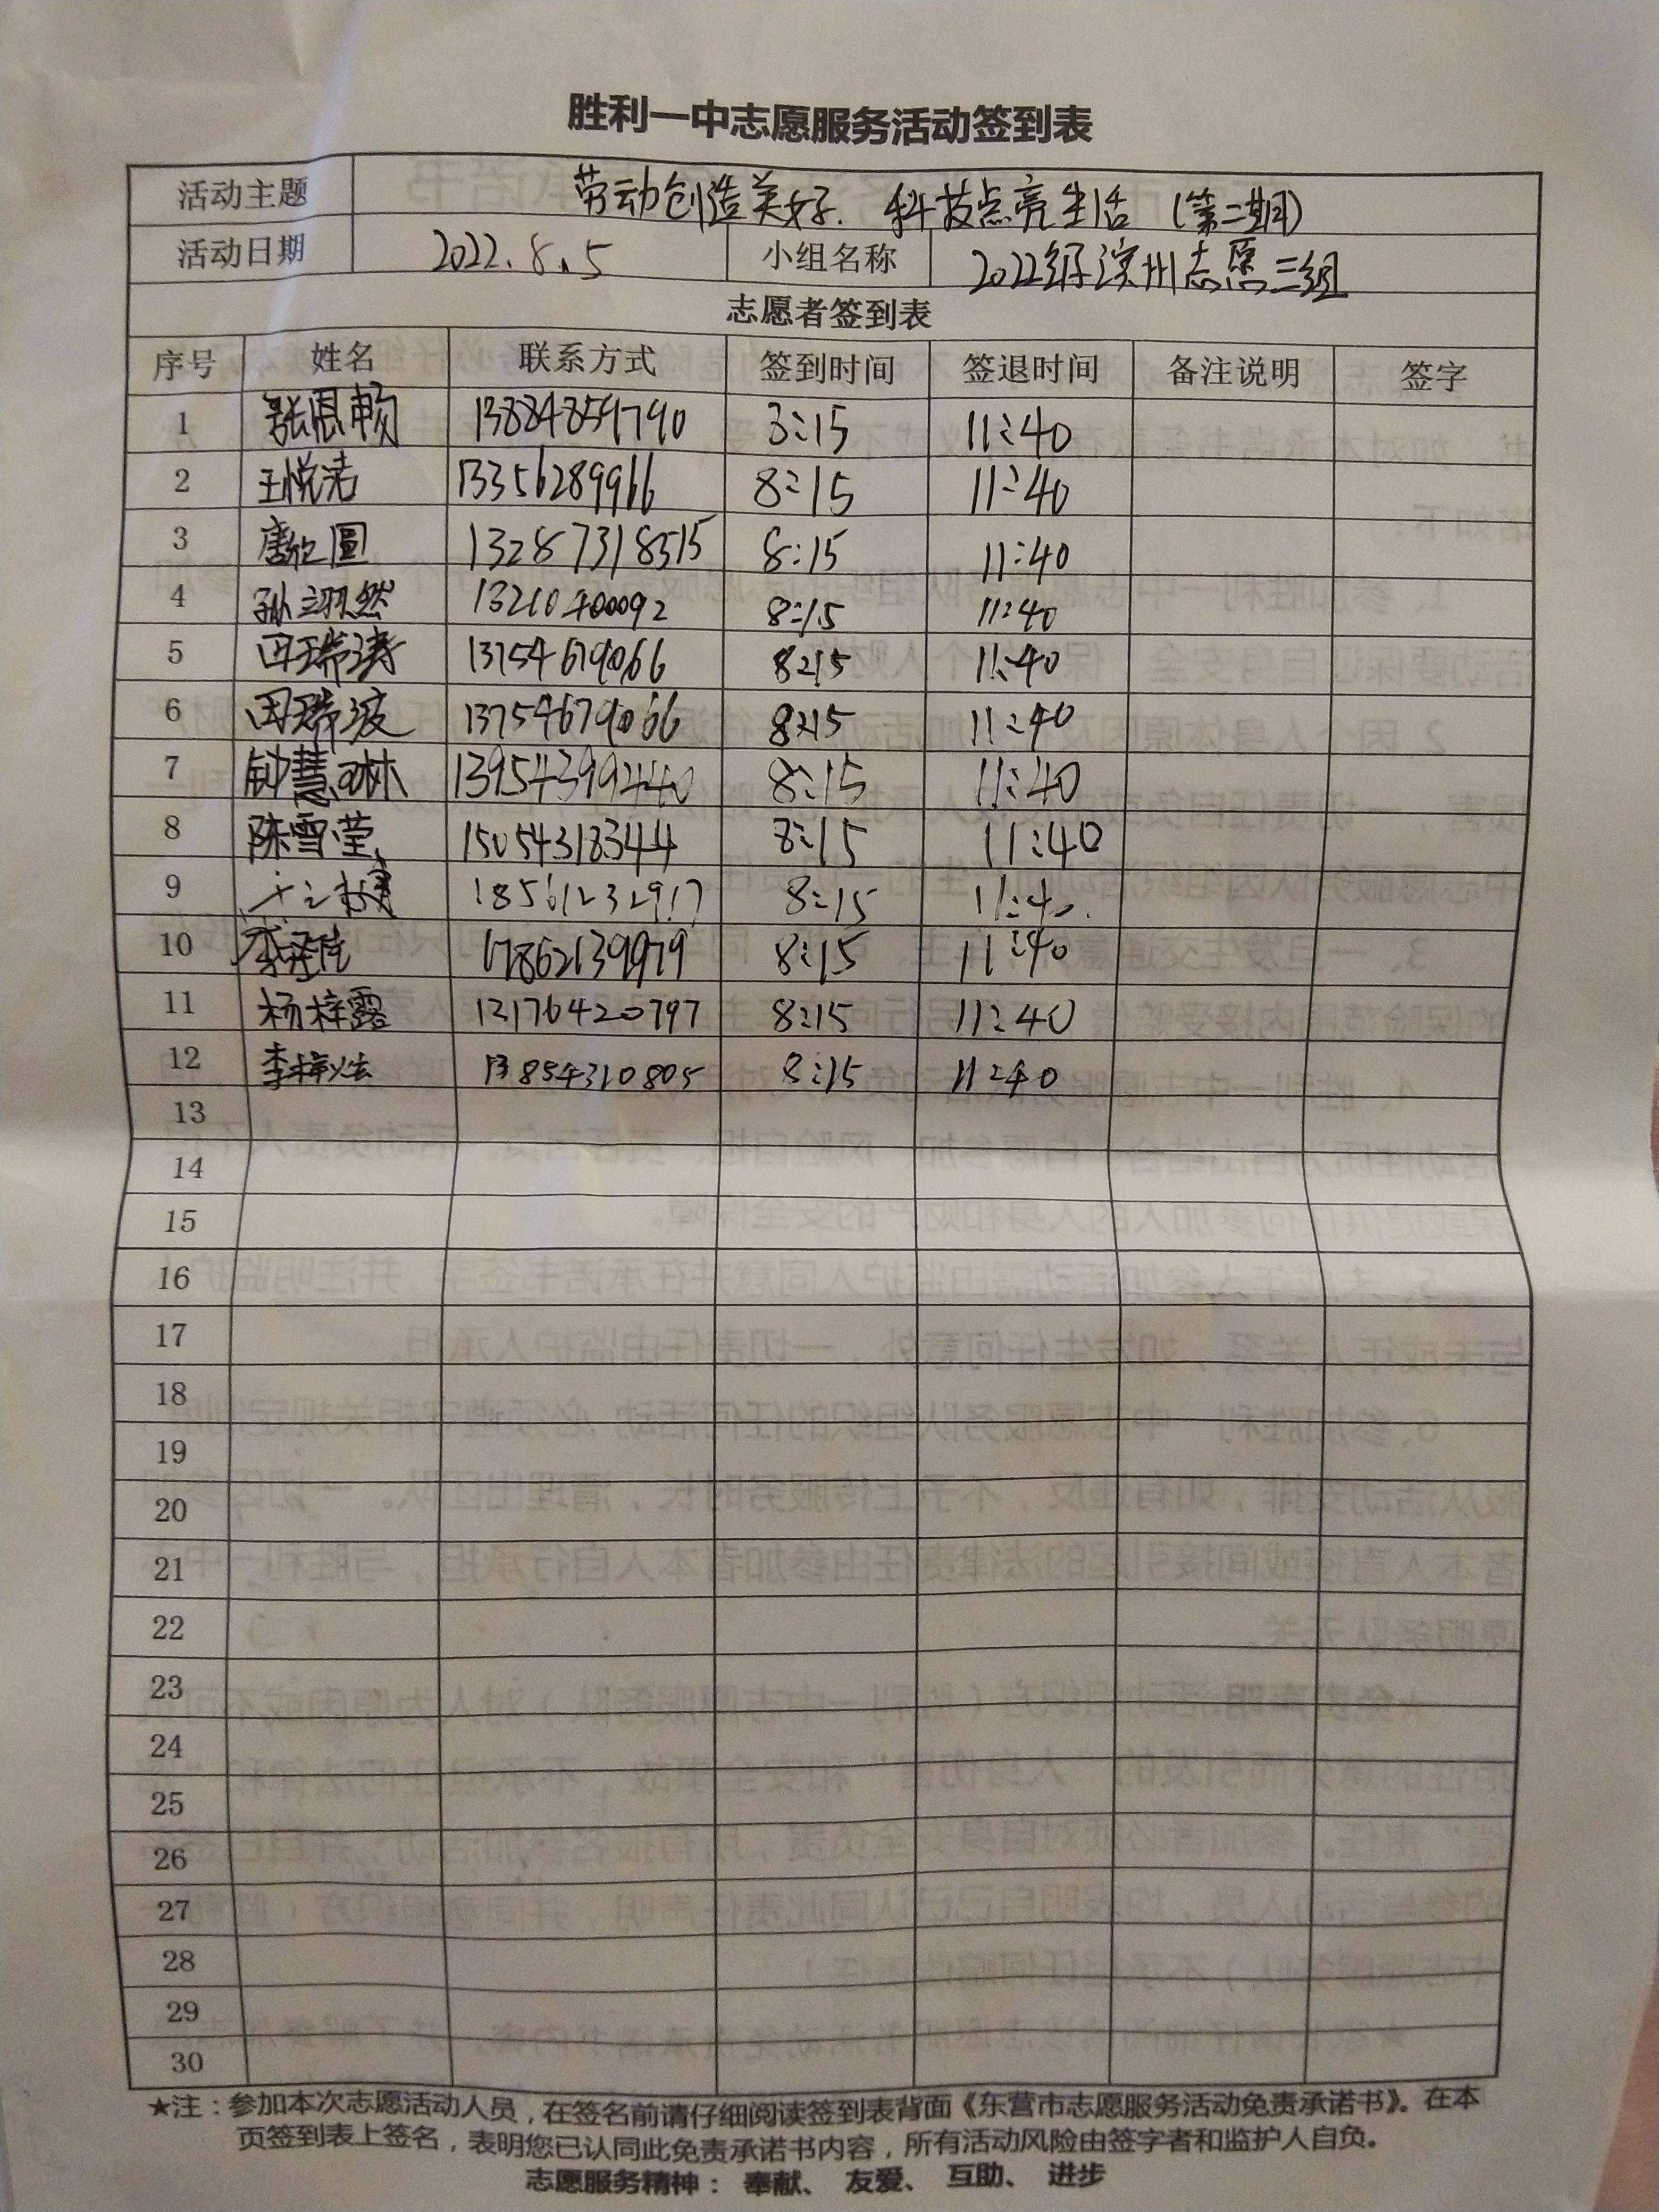 胜利一中志愿服务活动签到表
活动主题 劳动创造美好. 科技点亮生活 (第二期)
活动日期 2022.8.5 小组名称 2022级滨州志愿三组
志愿者签到表
序号 姓名 联系方式 签到时间 签退时间 备注说明 签字
1 张恩赖 13884859790 8:15 11:40
2 王悦洁 13356289966 8:15 11:40
3 13287318515 8:15 11:40
4 孙翊然 13210400092 8:15 11:40
5 田瑞涛 13754679066 8:15 11:40
6 田瑞波 13754679066 8:15 11:40
7 钟慧琳 13954399440 8:15 11:40
8 陈雪莹 15054318344 8:15 11:40
9 18561232917 8:15 11:40
10 17862139979 8:15 11:40
11 杨梓露 13176420797 8:15 11:40
12 13854310805 8:15 11:40
13
14
15
16
17
18
19
20
21
22
23
24
25
26
27
28
29
30
★注：参加本次志愿活动人员，在签名前请仔细阅读签到表背面《东营市志愿服务活动免责承诺书》。在本
页签到表上签名，表明您已认同此免责承诺书内容，所有活动风险由签字者和监护人自负。
志愿服务精神： 奉献、 友爱、 互助、 进步